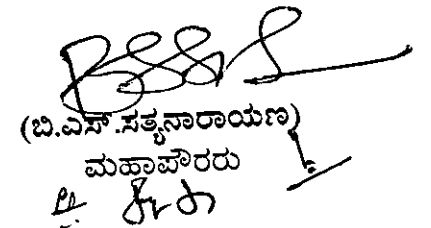 (ಬಿ.ಎಸ್.ಸತ್ಯನಾರಾಯಣ)
ಮಹಾಪೌರರು